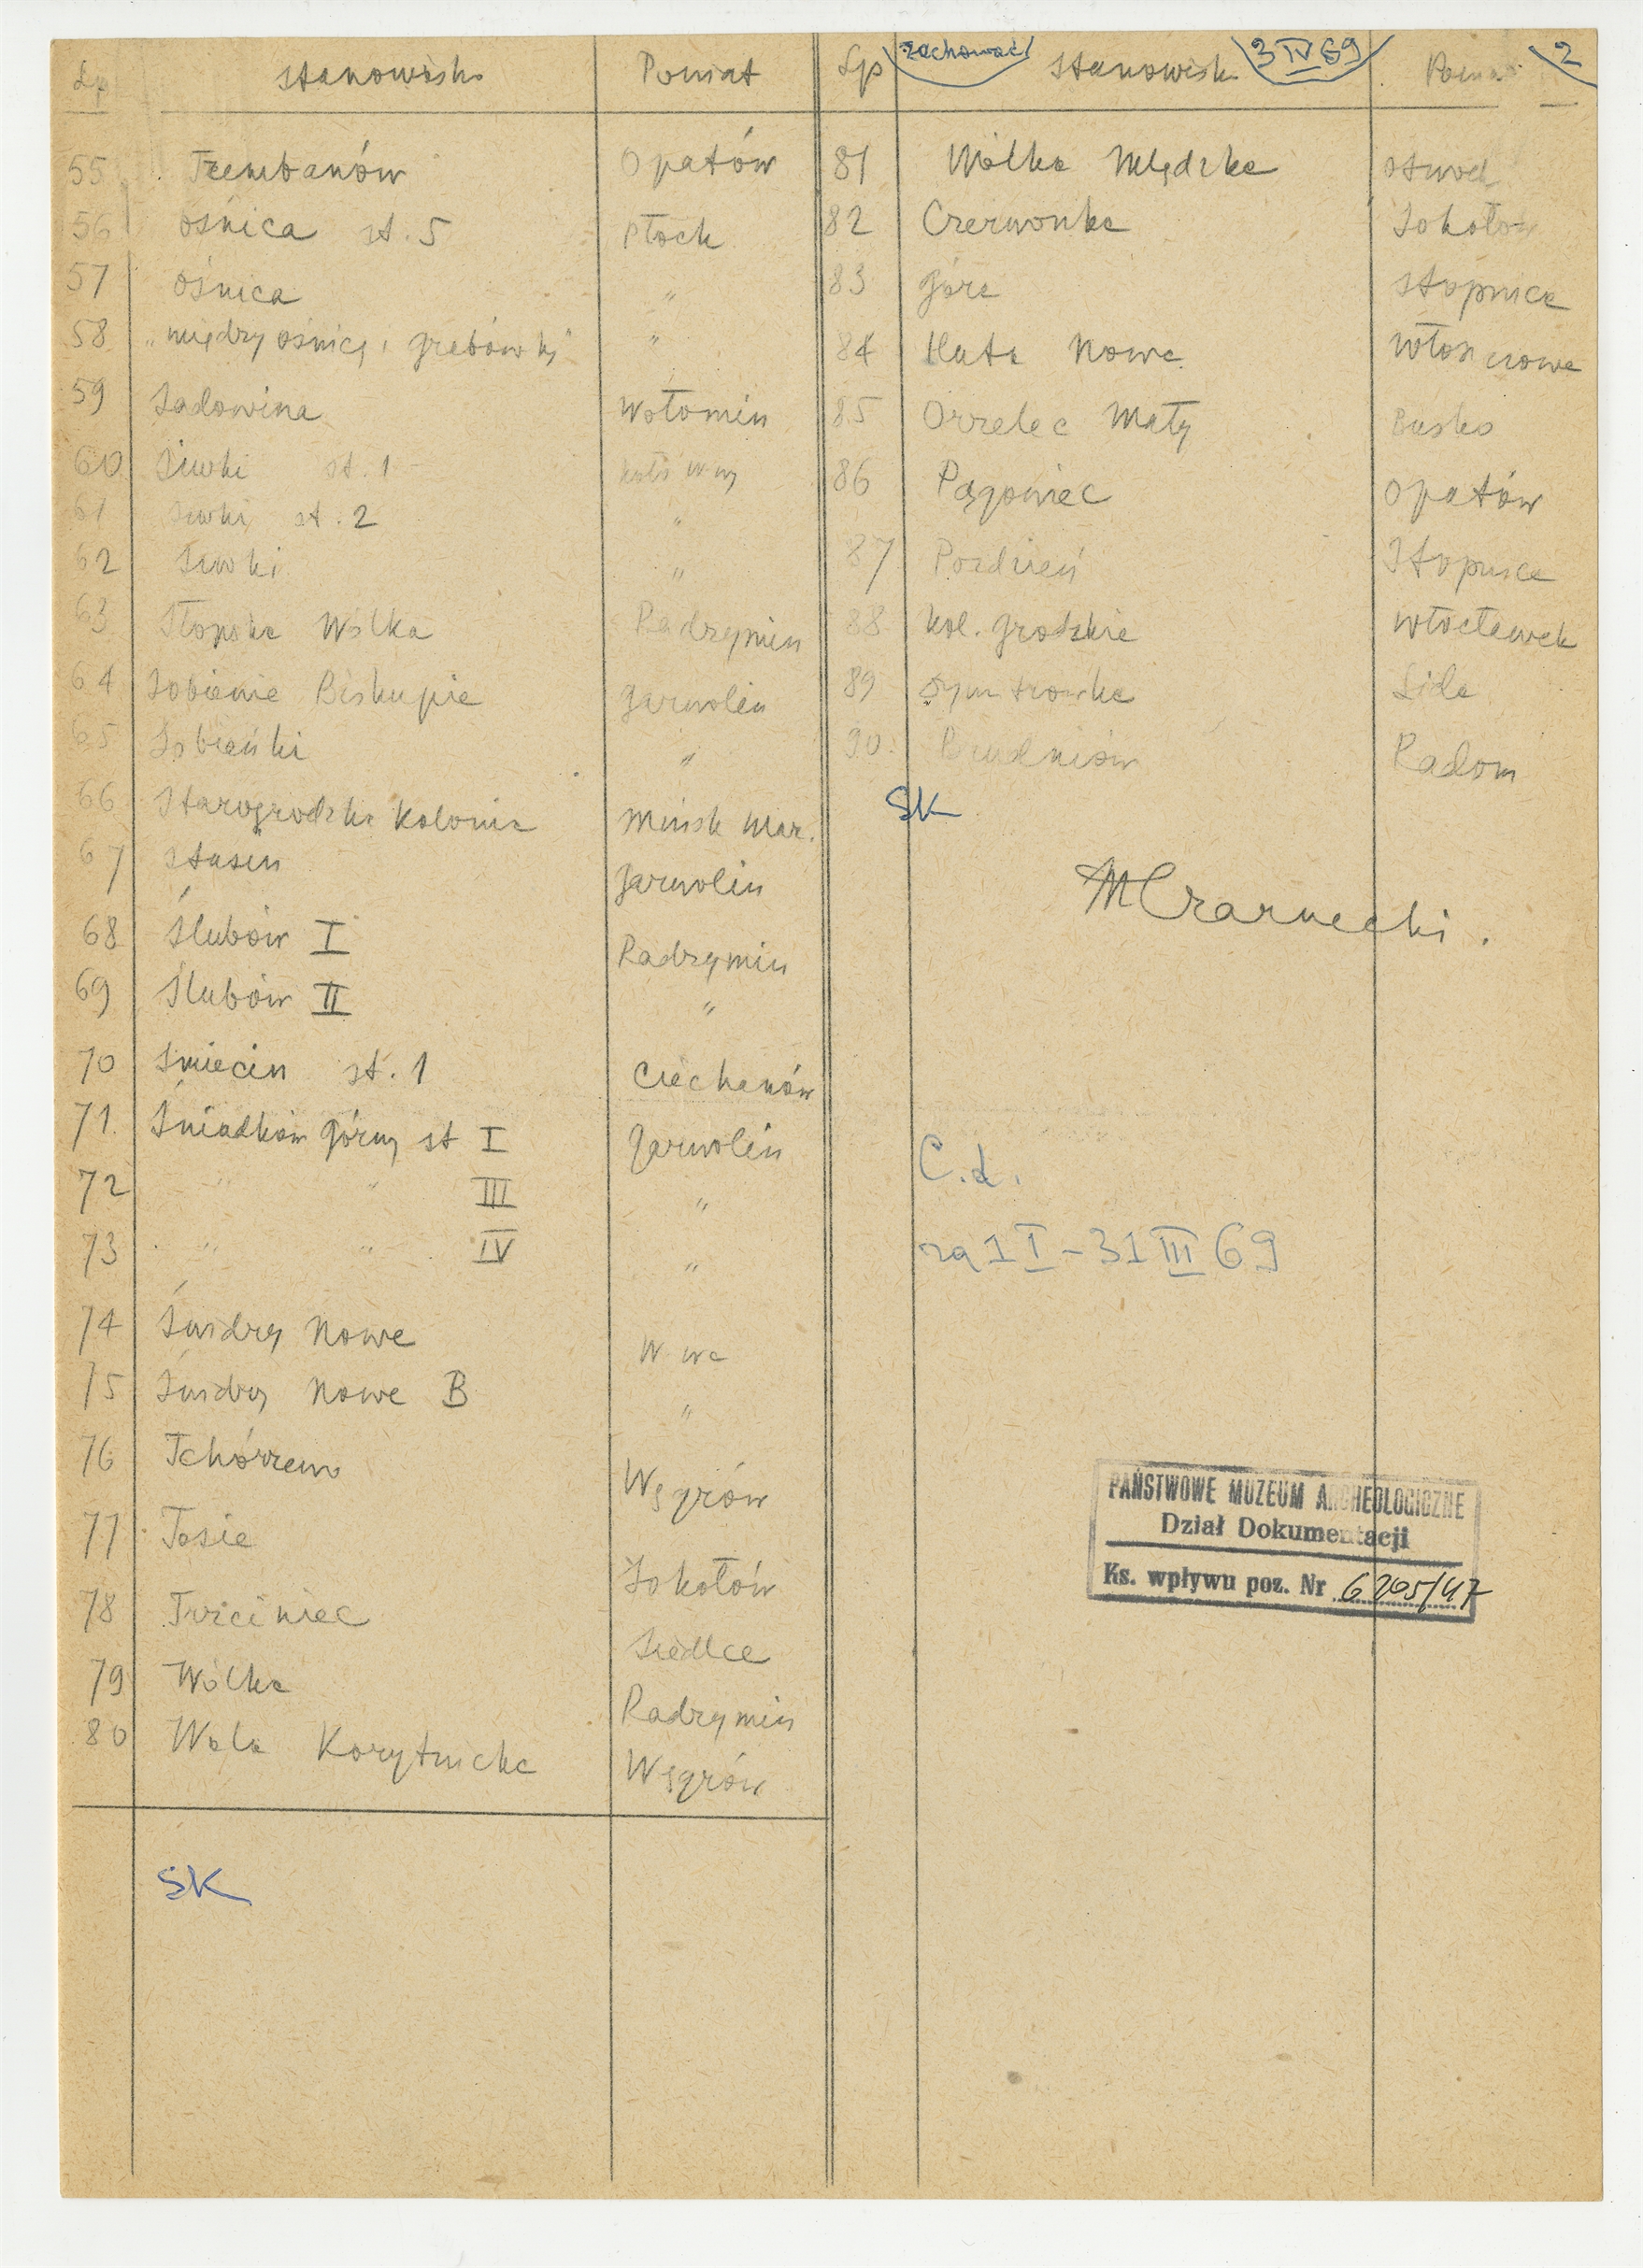 Lp Stanowisko Powiat Lp zachować Stanowisk 3 IV 69 Powiat 2
55 Trembanów Opatów
56 Ośnica st. 5 Płock
57 Ośnica "
58 "między Ośnicą i Grabówką" "
59 Sadowina Wołomin
60 Siwki st. 1
61 Siwki st. 2 "
62 Siwki "
63 Słopska Wólka Radzymin
64 Sobienie Biskupie Garwolin
65 Sobieńki "
66 Starogrodzka Kolonia Mińsk Maz.
67 Stasin Garwolin
68 Ślubów I Radzymin
69 Ślubów II "
70 Smiecin st. 1 Ciechanów
71. Śniadków Górny st I Garwolin
72 " " III "
73 " " IV "
74 Świdry Nowe W-wa
75 Świdry Nowe B "
76 Tchórzew Węgrów
77 Tosie Sokołów
78 Trzciniec Siedlce
79 Wólka Radzymin
80 Wola Korytnicka Węgrów
SK
81 Wólka Mlądzka Otwock
82 Czerwonka Sokołów
83 Góra Stopnica
84 Huta Nowa Włoszczowa
85 Orzelec Mały Busko
86 Pągowiec Opatów
87 Pozdzień Stopnica
88 Kol. Grodzkie Włocławek
89 Dymitrowka Lida
90. Brudnów Radom
SK
MCzarnecki.
C.d.
za 1 I - 31 III 69
PAŃSTWOWE MUZEUM ARCHEOLOGICZNE
Dział Dokumentacji
Ks. wpływu poz. Nr 6205/47